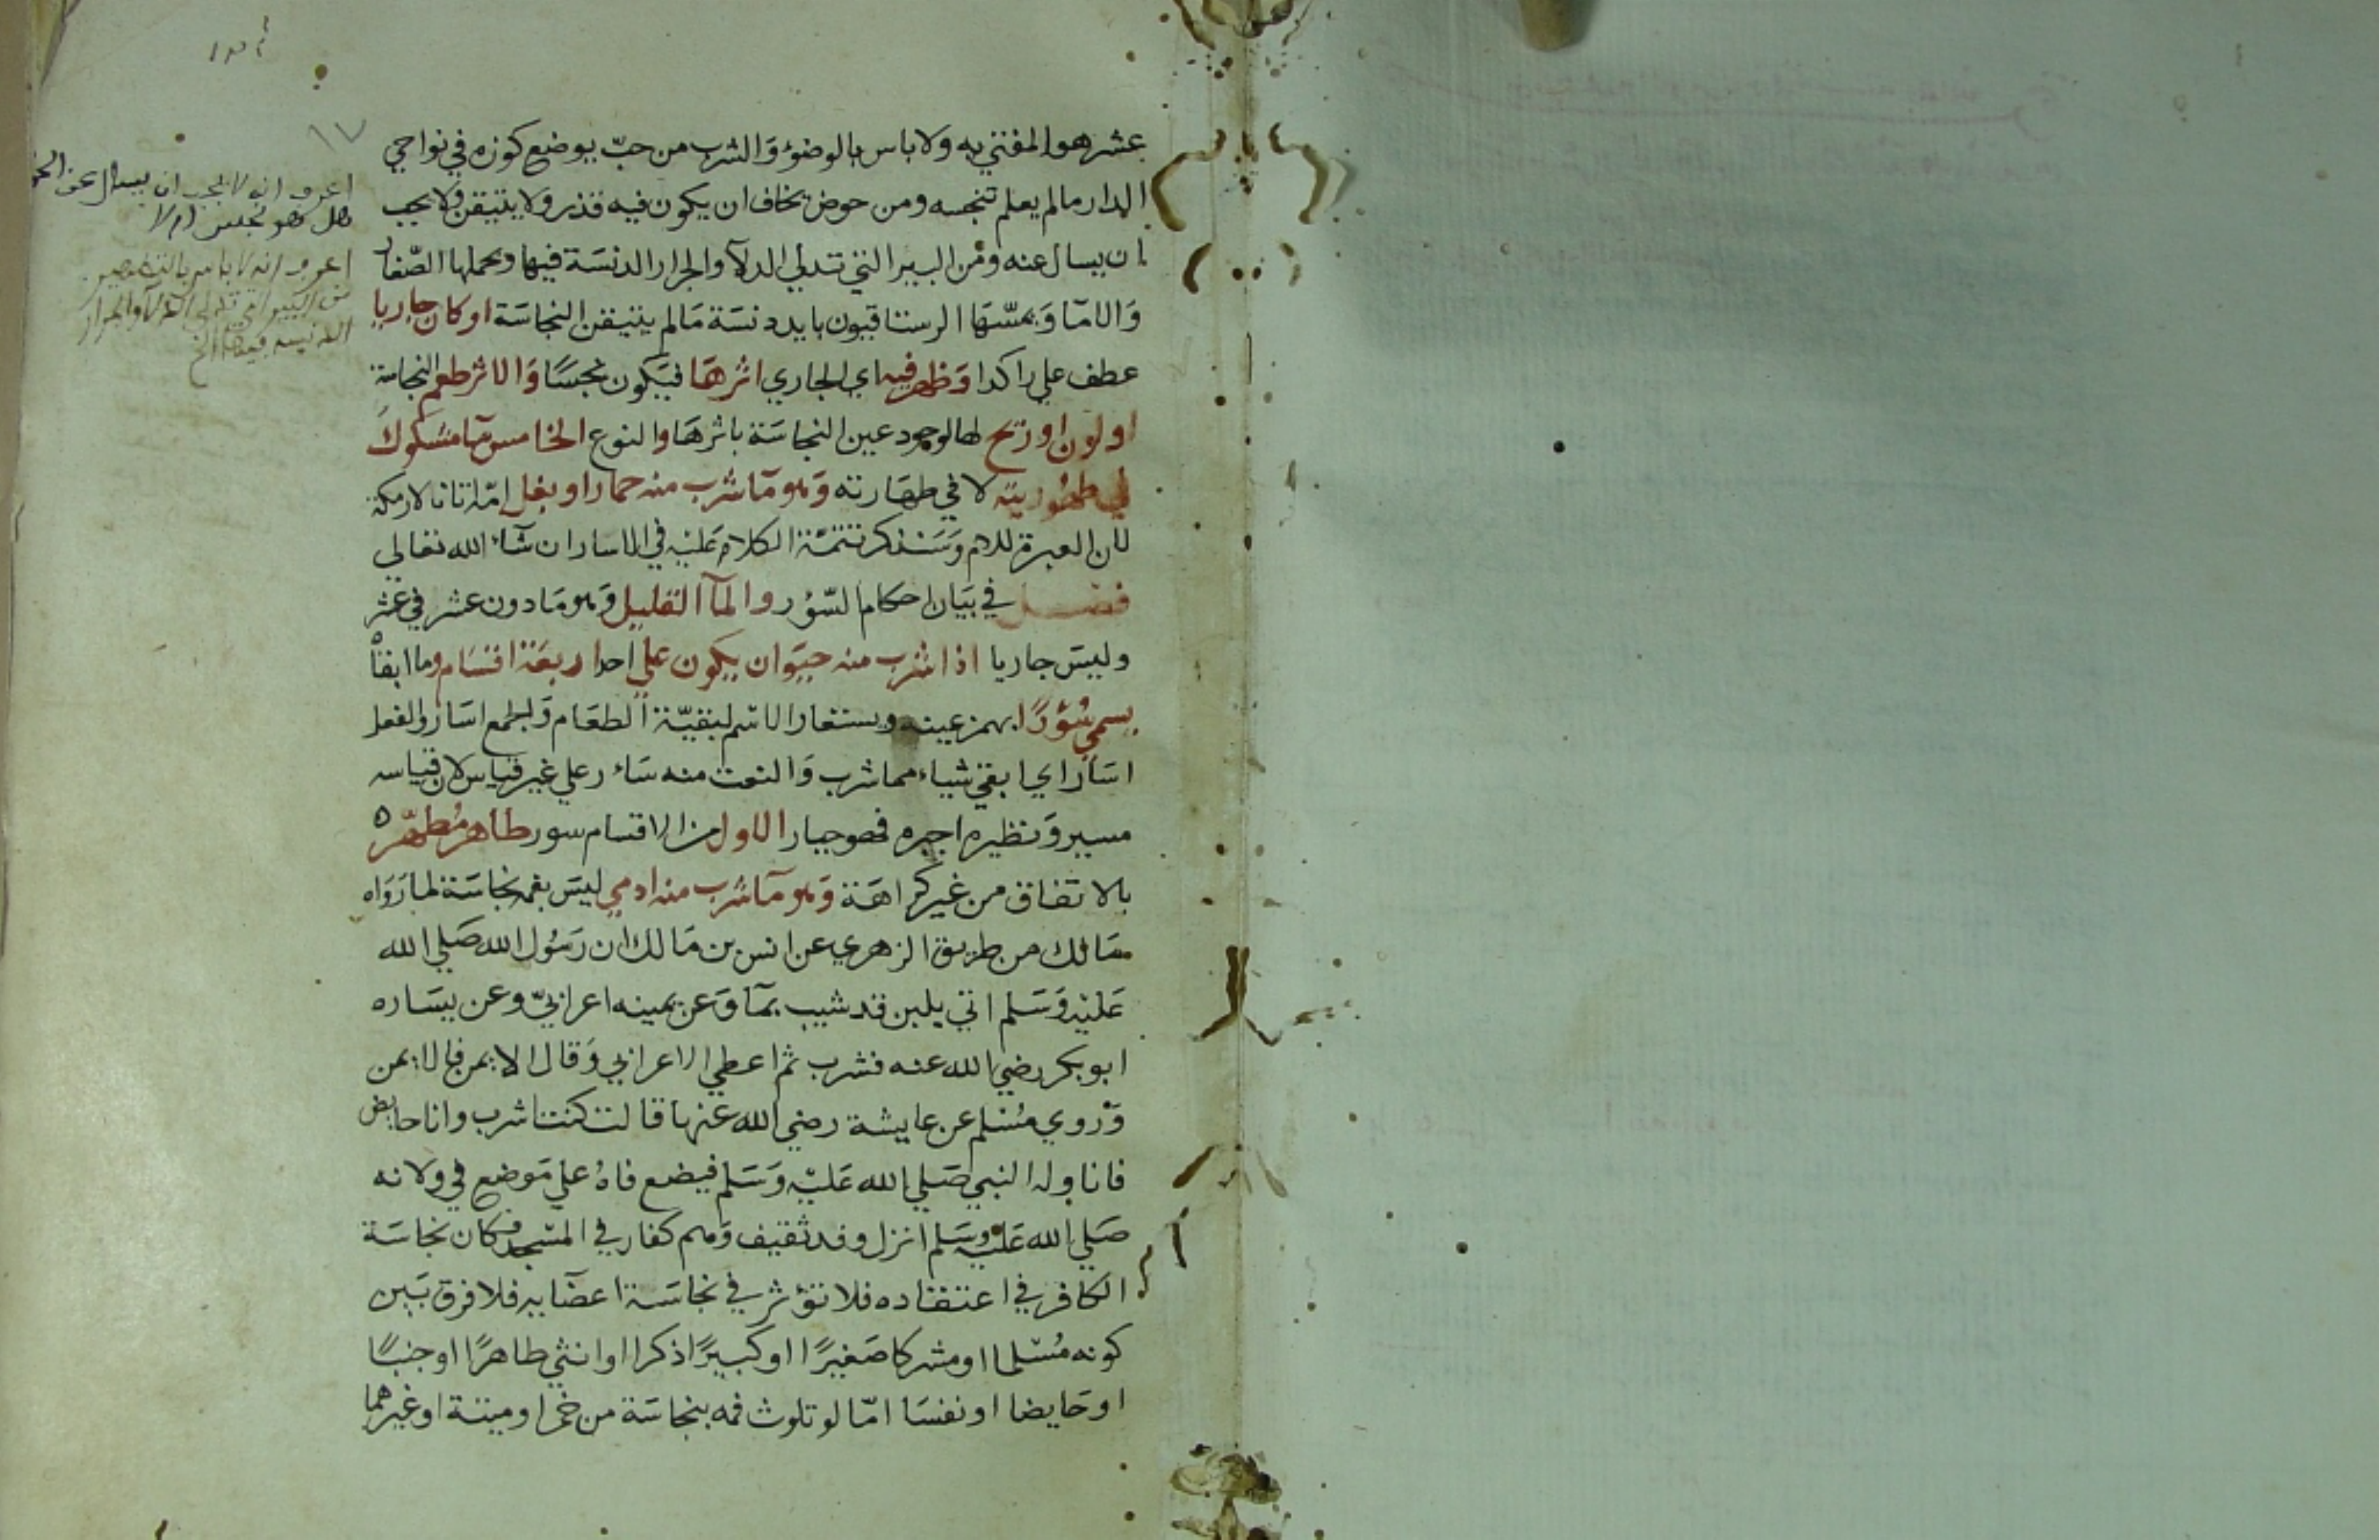 عشر هو المفتي به ولا باس بالوضوء والشرب من حبّ يوضع كوزه في نواحي
الدار مالم يعلم تنجسه ومن حوض يخاف ان يكون فيه قذر ولا يتيقن ولا يجب
ان يسال عنه ومن البير التي تدلي الدلآ والجرار الدنسَة فيها ويحملها الصّغار
وَالامآ وَيمسّهَا الرستاقيون بايد دنسَة مَالم يتيقن النجاسَة او كان جاريا
عطف علي راكدا وَظهر فيه اي الجاري اثرهَا فيَكون نجسًا وَالاثر طعم النجاسة
او لون او ريح لها لوجود عين النجاسَة باثرهَا والنوع الخامس مآ مشكوك
في طهُوريته لا في طهَارته وَهو مآ شرب منه حمار او بغل امّه اتانا لا رمكة
لان العبرة للام وَسَنذكر تتمّة الكلام عَليْه في الاسار ان شآء الله تعالى
فصـــل في بيَان احكام السّؤر والمآ القليل وَهو مَا دون عشر في عشر
وليسَ جاريا اذا شرب منه حيَوان يكون علي احد اربعَة اقسَام وما ابقاْه
يسمي سُؤرًا بهمز عينه ويستعار الاسْم لبقيّة الطعَام وَالجمع اسَار والفعل
اسَأر اي ابقي شياء مما شرب وَالنعت منه سَاٰر علي غير قياس لان قياسه
مسير وَنظيره اجبره فهو جبار الاول من الاقسام سور طاهر مُطهّر ه
بالاتفاق من غير كراهَة وَهو مآ شرب منه ادمي ليسَ بفمه نجاسَة لما رَوَاه
مَالك من طريق الزهري عن انس بن مَالك ان رَسُول الله صَلي الله
عَليْه وَسَلم اتي بلبن قد شيب بمآ وَعن يمينه اعرابيّ وعن يسَاره
ابو بكر رضي الله عنه فشرب ثم اعطي الاعرابي وَقال الايمن فالايمن
وَروي مُسْلم عن عايشة رضي الله عنها قالت كنت اشرب وانا حايض
فاناوله النبي صَلي الله عَليْه وَسَلم فيضع فاهُ علي مَوضع في ولانه
صَلي الله عَليْه وسَلم انزل وفد ثقيف وَهم كفار في المسْجد فكان نجاسَة
الكافر في اعتقاده فلا تؤثر في نجاسَة اعضآيه فلا فرق بَين
كونه مُسْلما او مشركا صَغيرًا او كبيرًا ذكرا او انثي طاهرًا او جنبًا
او حَايضا او نفسَا امّا لو تلوث فمه بنجاسَة من خمر او ميتة او غيرهما
١٧
اعرف انه لا يجب ان يسال عن
هل هو نجس ام لا
اعرف انه لا باس
من البير التي تدلي الدلآ والجرار
الدنسة فيها الخ